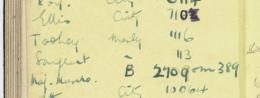 Ellis City 7102
Toohey Manly 1116
Sargent " 113
Maj. Munro. B 2709 or 389
City 10064